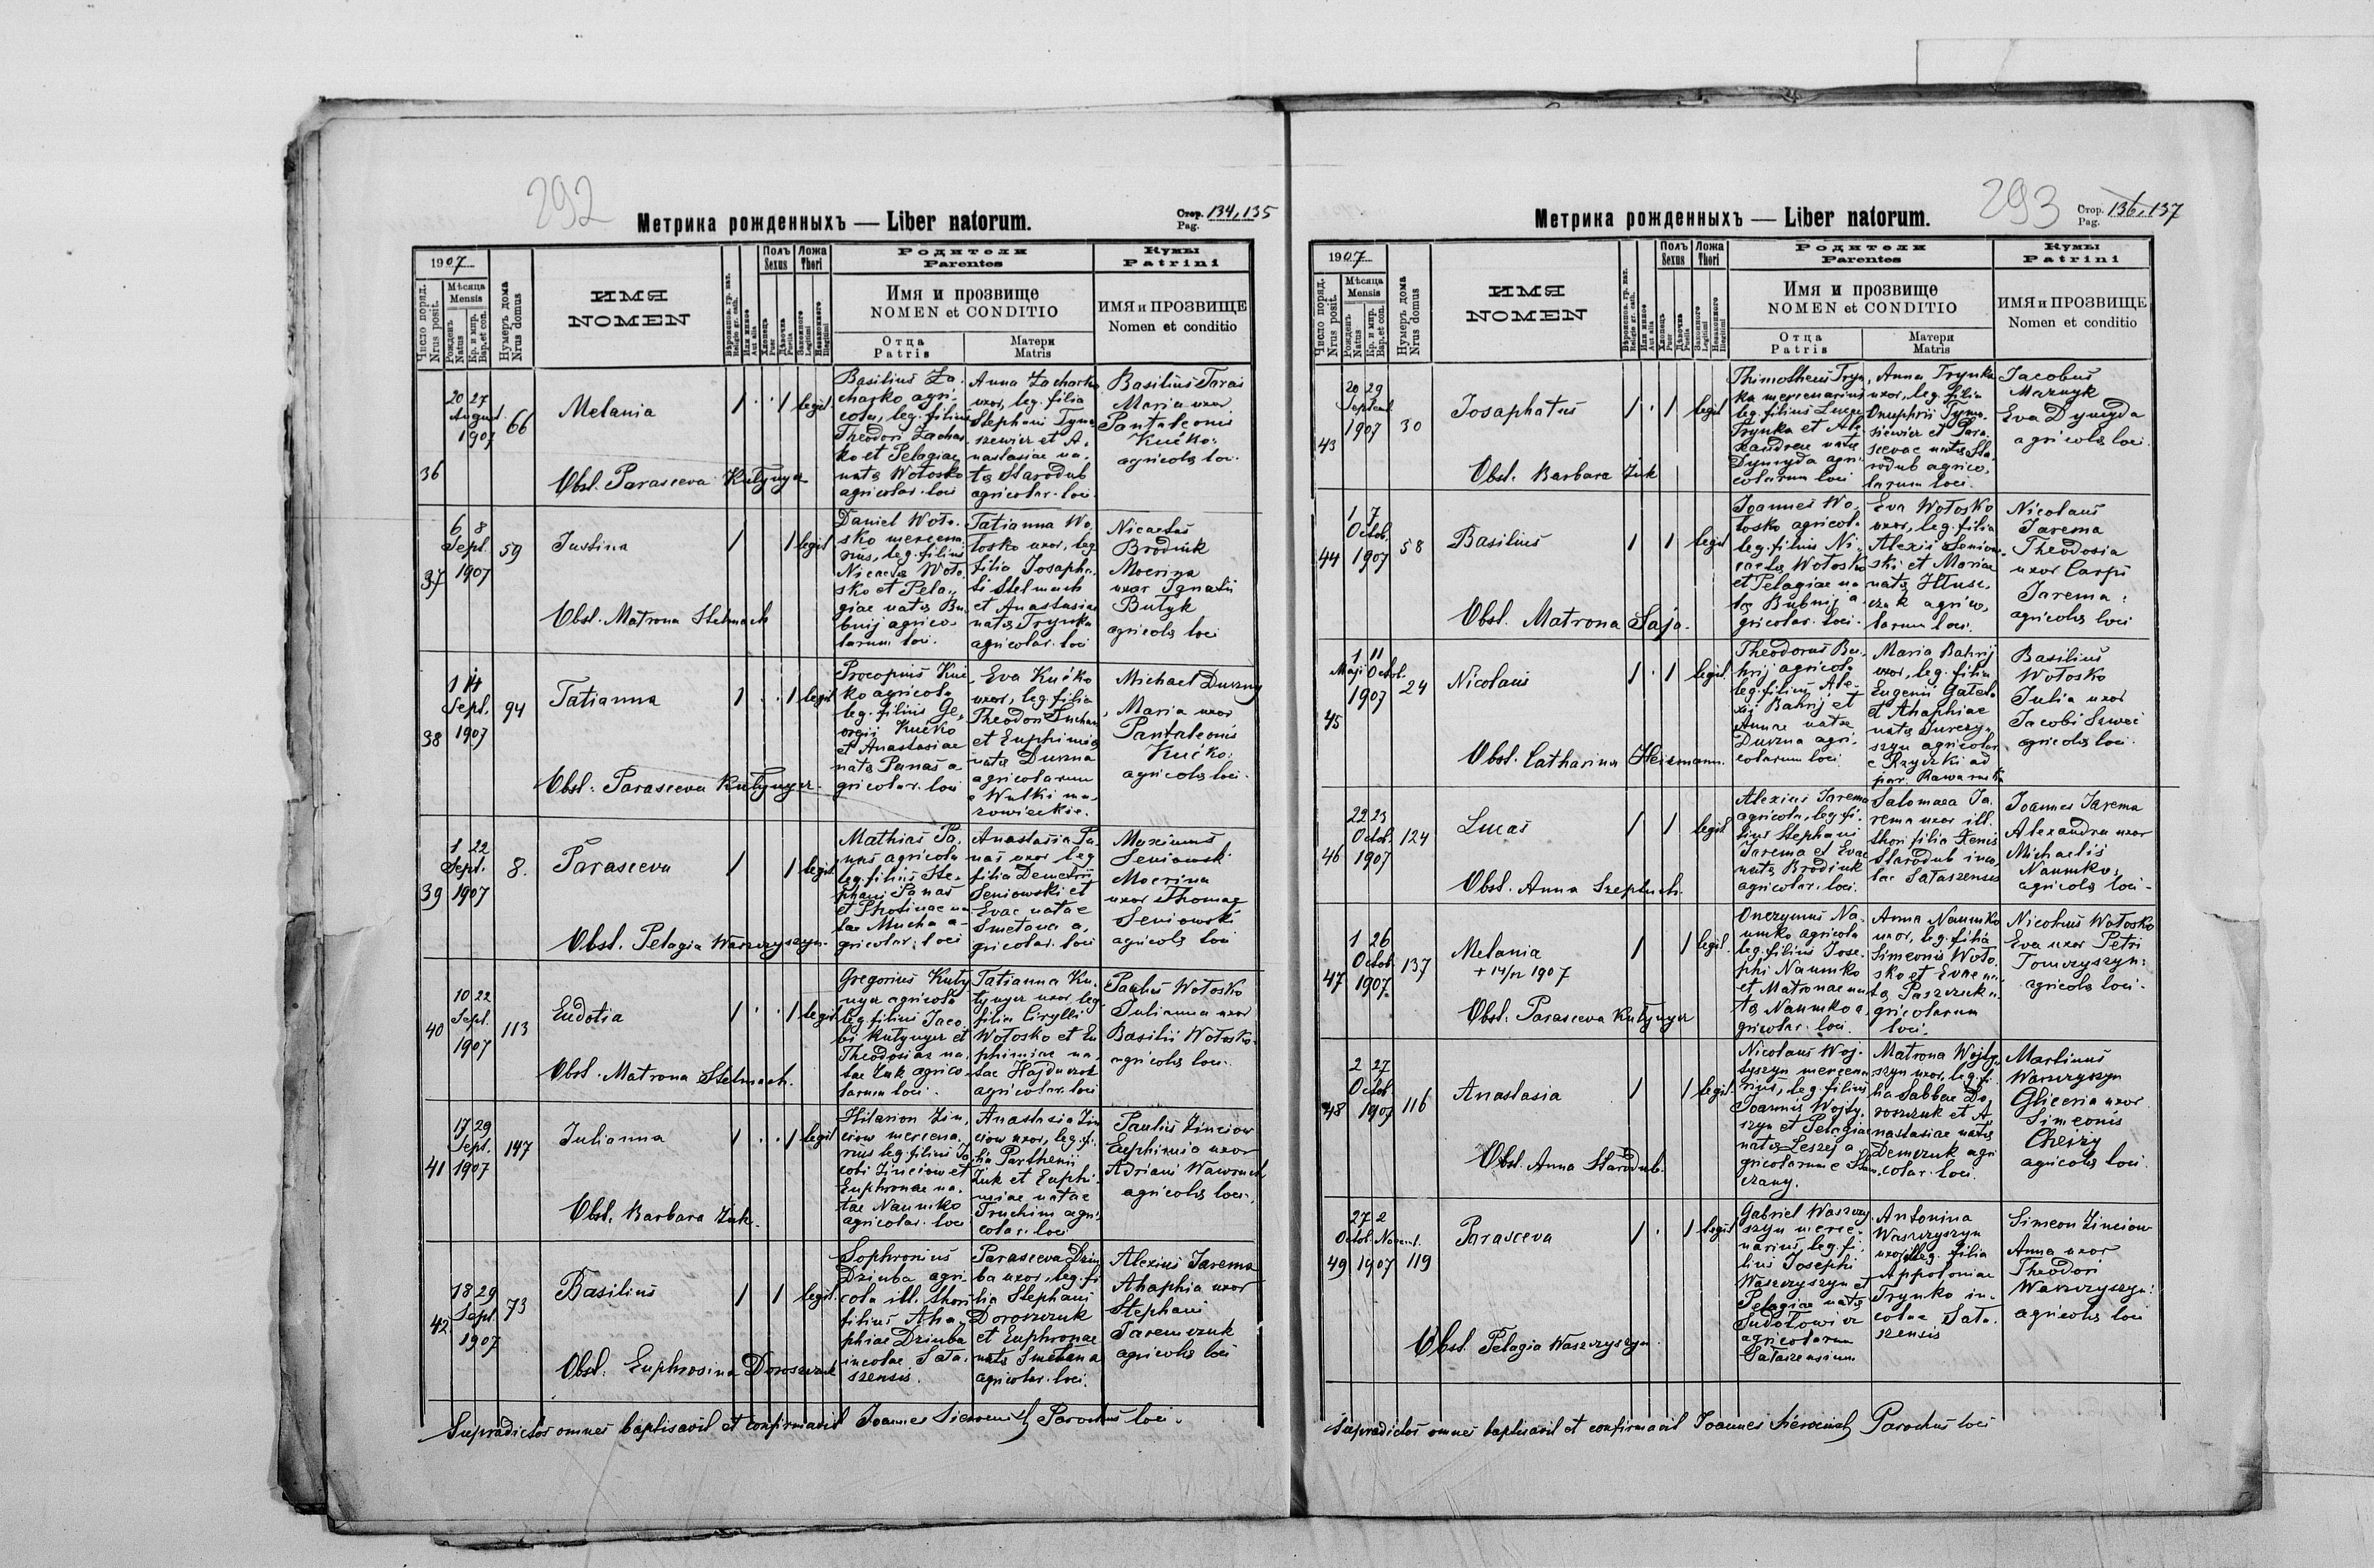 292
Метрика рожденныхъ — Liber natorum.
Стор. 134, 135
Pag.
1907
Число поряд.
Nrus posit.
Мѣсяца
Mensis
Рожденъ
Natus
Кр. и мир.
Bap. et con.
Нумеръ дома
Nrus domus
ИМЯ
NOMEN
Полъ
Sexus
Ложа
Thori
Родители
Parentes
Имя и прозвище
NOMEN et CONDITIO
Отца
Patris
Матери
Matris
Кумы
Patrini
ИМЯ и ПРОЗВИЩЕ
Nomen et conditio
36
20 27
August.
1907
66
Melania
1 1 legit.
Obst. Parasceva Kutynyer
Basilius Za-
charko agri-
cola, leg. filius
Theodori Zachar
ko et Pelagiae
natae Wołosko
agricolar. loci
Anna Zacharko
uxor, leg. filia
Stephani Tyma
szewicz et A-
nastasiae na-
tae Starodub
agricolar. loci.
Basilius Taras
Maria uxor
Pantaleonis
Kućko:
agricolae loci.
37
6 8
Sept.
1907
59
Justina
1 1 legit.
Obst. Matrona Stelmach
Daniel Woło-
sko mercena
rius, leg. filius
Nicetae Woło
sko et Pela-
giae natae Bu
bnij agrico-
larum loci.
Tatianna Wo-
łosko uxor, leg
filia Josapha-
ti Stelmach
et Anastasiae
natae Trynka
agricolar. loci
Nicaetas
Brodiuk
Mocrina
uxor Ignatii
Butyk
agricolae loci
38
1 14
Sept.
1907
94
Tatianna
1 1 legit.
Obst. Parasceva Kutynyer.
Procopius Kuć
ko agricola
leg. filius Ge-
orgii Kućko
et Anastasiae
natae Panas a-
gricolar. loci
Eva Kućko
uxor, leg. filia
Theodori Suchan
et Euphimiae
natae Durna
agricolarum
e Wulki ma-
zowieckie.
Michael Durny
Maria uxor
Pantaleonis
Kućko:
agricolae loci.
39
1 22
Sept.
1907
8.
Parasceva
1 1 legit.
Obst. Pelagia Waszczyszyn.
Mathias Pa-
nas agricola
leg. filius Ste-
phani Panas
et Photinae na-
tae Mucha a-
gricolar. loci
Anastasia Pa-
nas uxor leg
filia Demetrii
Seniowski et
Evae natae
Smetana a-
gricolar. loci
Maximus
Seniowski
Mocrina
uxor Thomae
Seniowski
agricolae loci
40
10 22
Sept.
1907
113
Eudotia
1 1 legit.
Obst. Matrona Stelmach.
Gregorius Kuty
nyer agricola
leg. filius Jaco
bi Kutynyer et
Theodosiae na-
tae Żuk agrico-
larum loci.
Tatianna Ku-
tynyer uxor leg
filia Cirylli
Wołosko et Eu
phimiae na-
tae Hajduczok
agricolar. loci
Paulus Wołosko
Julianna uxor
Basilii Wołosko
agricolae loci.
41
17 29
Sept.
1907
147
Julianna
1 1 legit
Obst. Barbara Żuk.
Hilarion Zin
ciow mercena-
rius leg. filius Ja
cobi Zinciow et
Euphronae na-
tae Naumko
agricolar. loci
Anastasia Zin
ciow uxor, leg. fi-
lia Parthenii
Żuk et Euphi-
miae natae
Truchim agri-
colar. loci
Paulus Zinciow
Euphimia uxor
Adriani Wawruch
agricolae loci.
42
18 29
Sept.
1907
73
Basilius
1 1 legit.
Obst. Euphrosina Doroszczuk
Sophronius
Dziuba agri-
cola ill. thori
filius Aha-
phiae Dziuba
incolae Sała-
szensis.
Parasceva Dziu
ba uxor, leg. fi
lia Stephani
Doroszczuk
et Euphronae
natae Smetana
agricolar. loci.
Alexius Jarema
Ahaphia uxor
Stephani
Jaremczuk
agricolae loci
Supradictos omnes baptisavit et confirmavit Joannes Parochus loci.
293
Метрика рожденныхъ — Liber natorum.
Стор. 136, 137
Pag.
1907
Число поряд.
Nrus posit.
Мѣсяца
Mensis
Рожденъ
Natus
Кр. и мир.
Bap. et con.
Нумеръ дома
Nrus domus
ИМЯ
NOMEN
Полъ
Sexus
Ложа
Thori
Родители
Parentes
Имя и прозвище
NOMEN et CONDITIO
Отца
Patris
Матери
Matris
Кумы
Patrini
ИМЯ и ПРОЗВИЩЕ
Nomen et conditio
43
20 29
Septemb.
1907
30
Josaphatus
1 1 legit
Obst. Barbara Żuk
Thimotheus Tryn
ka mercenarius
leg. filius Lucae
Trynka et Ale-
xandrae natae
Dymyda agri-
colarum loci
Anna Trynka
uxor, leg. filia
Onuphrii Tyma-
siewicz et Para-
scevae natae Sta
rodub agrico-
larum loci.
Jacobus
Mazuyk
Eva Dymyda
agricolae loci.
44
1 7
Octob.
1907
58
Basilius
1 1 legit
Obst. Matrona Saja.
Joannes Wo-
łosko agricola
leg. filius Ni-
caetae Wołosko
et Pelagiae na-
tae Bubnij a-
gricolar. loci.
Eva Wołosko
uxor, leg. filia
Alexii Seniow-
ski et Mariae
natae Hłusz-
czak agrico-
larum loci.
Nicolaus
Jarema
Theodosia
uxor Carpi
Jarema:
agricolae loci
45
1 11
Maji Octob.
1907
24
Nicolaus
1 1 legit.
Obst. Catharina Heizmann.
Theodorus Ba-
hrij agricola
leg. filius Ale-
xii Bahrij et
Annae natae
Durna agri-
colarum loci
Maria Bahrij
uxor, leg. filia
Eugenii Gatela
et Ahaphiae
natae Jurczy-
szyn agricolar.
e Rzyczki ad
par. Rawa ruska
Basilius
Wołosko
Julia uxor
Jacobi Szweć
agricolae loci.
46
22 23
Octob.
1907
124
Lucas
1 1 legit
Obst. Anna Szeptuch.
Alexius Jarema
agricola, leg. fi-
lius Stephani
Jarema et Evae
natae Brodiuk
agricolar. loci.
Salomaea Ja-
rema uxor ill.
thori filia Xenis
Starodub inco-
lae Sałaszensis
Joannes Jarema
Alexandra uxor
Michaelis
Naumko:
agricolae loci.
47
1 26
Octob.
1907.
137
Melania
+ 14/12 1907
1 1 legit.
Obst. Parasceva Kutynyer
Onezymus Na-
umko agricola
leg. filius Jose-
phi Naumko
et Matronae na
tae Naumko a-
gricolar. loci.
Anna Naumko
uxor, leg. filia
Simeonis Woło-
sko et Evae na-
tae Paszczuk a-
gricolarum
loci.
Nicolaus Wołosko
Eva uxor Petri
Tomczyszyn:
agricolae loci.
48
2 27
Octob.
1907
116
Anastasia
1 1 legit.
Obst. Anna Starodub.
Nicolaus Woj-
tyszyn mercena
rius, leg. filius
Joannis Wojty-
szyn et Pelagiae
natae Leszej a-
gricolarum e
Matrona Wojty-
szyn uxor, leg. fi-
lia Sabbae Do-
roszczuk et A
nastasiae natae
Demczuk agri
colar. loci.
Martinus
Waszczyszyn
Gliceria uxor
Simeonis
agricolae loci.
49
27 2
Octob. Novemb.
1907
119
Parasceva
1 1 legit
Obst. Pelagia Waszczyszyn.
Gabriel Waszczy
szyn merce-
narius, leg. fi-
lius Josephi
Waszczyszyn et
Pelagiae natae
Sudołowicz
agricolarum
Sałaszensium
Antonina
Waszczyszyn
uxor illeg. filia
Appoloniae
Trynko in-
colae Sała-
szensis
Simeon Zinciow
Anna uxor
Theodori
Waszczyszyn:
agricolae loci
Supradictos omnes baptisavit et confirmavit Joannes Parochus loci